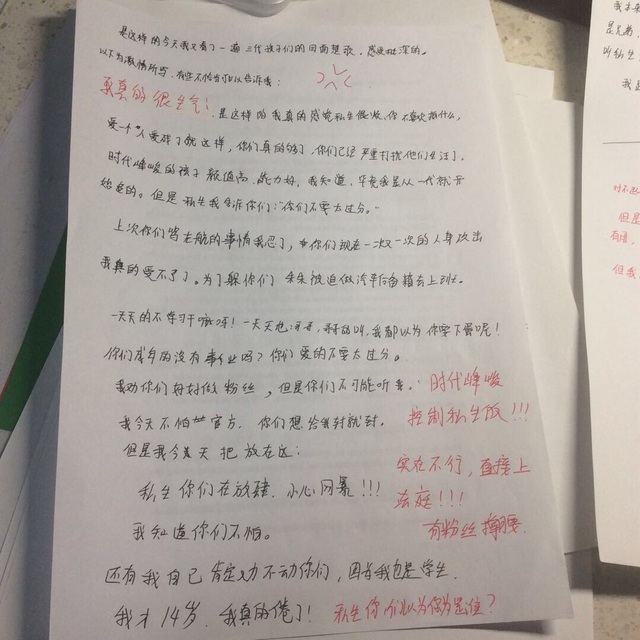 是这样的今天我又看了一遍三代孩子们的回南楚歌，感受挺深的。
以下为激情所写，有些不恰当可以告诉我：
我真的很生气！是这样的我真的感觉私生很 你不喜欢
爱一个人爱成了就这样，你们真的够了，你们已经严重打扰他们生活了。
时代峰峻的孩子颜值高，能力好，我知道，毕竟我是从一代就开
始爱的。但是私生我告诉你们：“你们不要太过分。”
上次你们骂老航的事情我忍了，你们现在一次一次的人身攻击
我真的受不了了。为了躲你们 朱朱被迫做汽车后备箱去上班。
一天天的不学习干嘛呀！一天天也哥哥，哥哥的叫，我都以为你要下蛋呢！
你们成年的没有事业吗？你们爱的不要太过分。
我劝你们好好做粉丝，但是你们不可能听
时代峰峻
我今天不怕官方，你们想给我封就封。
控制私生饭！！！
但是我今天把 放在这：
实在不行，直接上
法庭！！！
私生你们在放肆，小心网暴！！！
有粉丝撑腰
我知道你们不怕。
还有我自己肯定力不动你们，因为我也是学生，
我才14岁，我真的倦了！私生你们以为你为是谁？